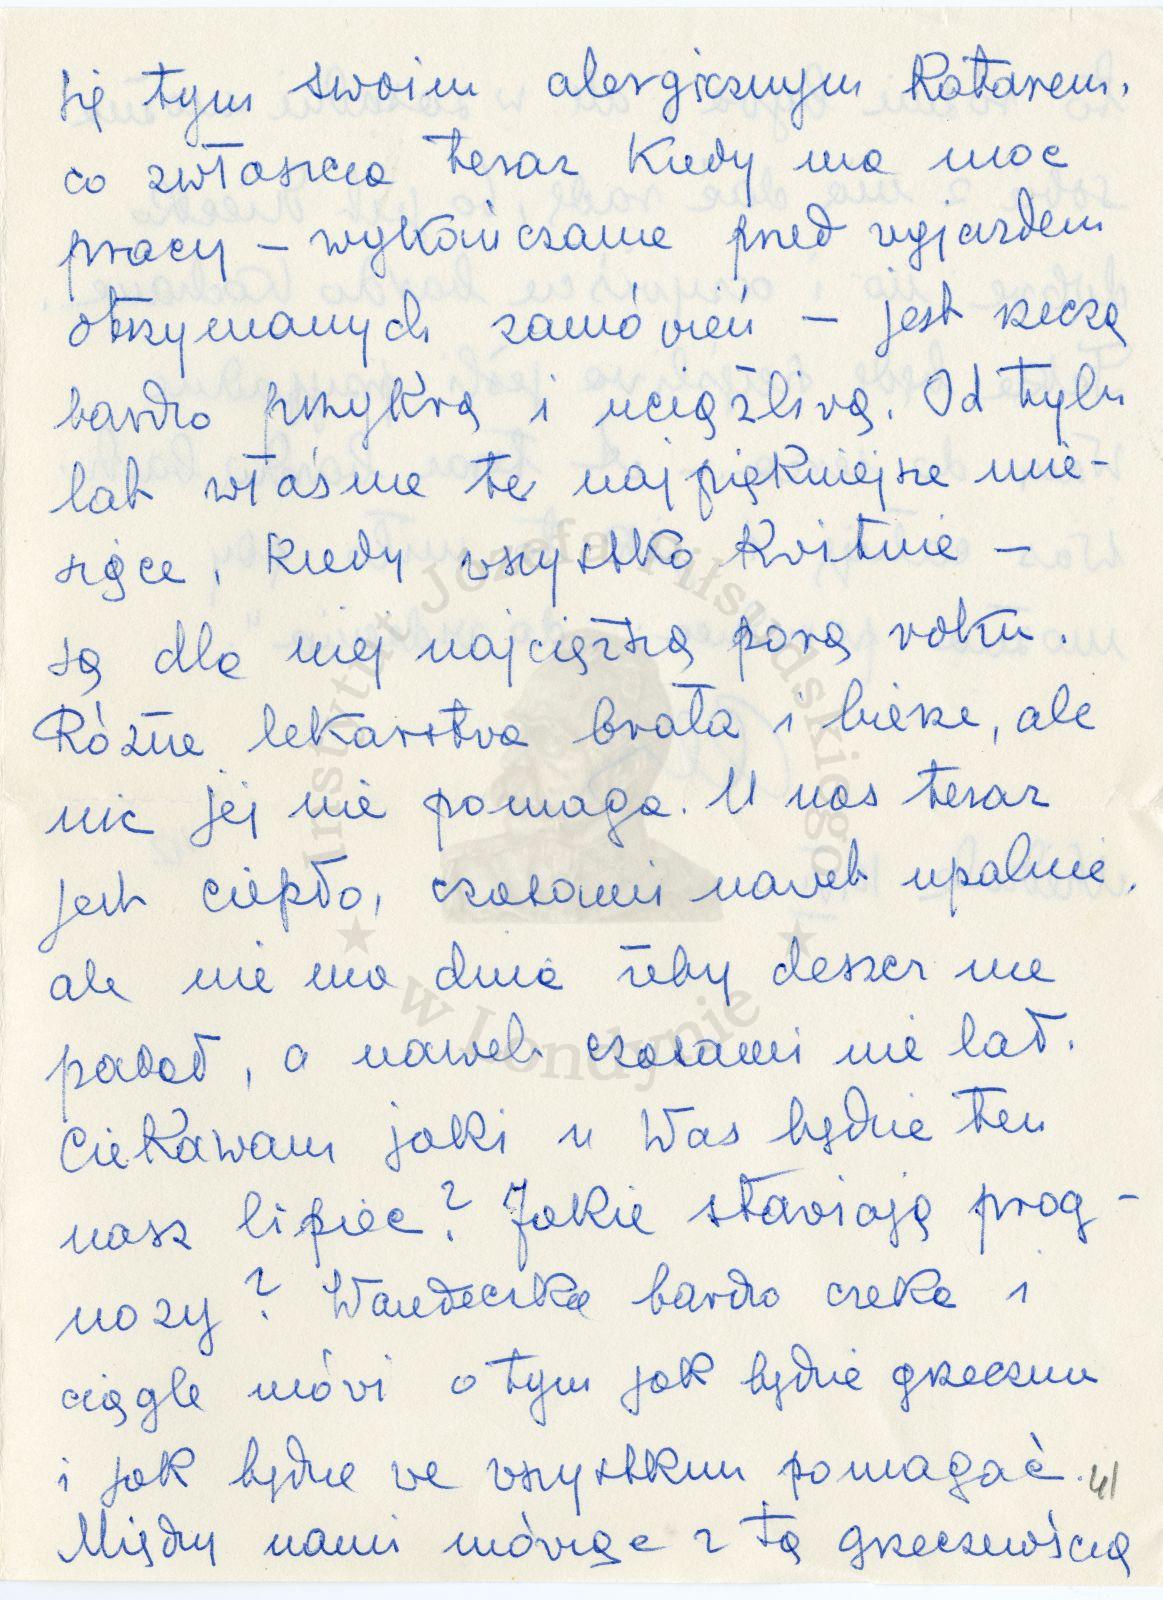 się tym swoim alergicznym Katarem,
co zwłaszcza teraz kiedy ma moc
pracy – wykończanie przed wyjazdem
otrzymanych zamówień – jest rzeczą
bardzo przykrą i uciążliwą. Od tylu
lat właśnie te najpiękniejsze mie-
siące, kiedy wszystko kwitnie –
są dla niej najcięższą porą roku.
Różne lekarstwa brała i bierze, ale
nic jej nie pomaga. U nas teraz
jest ciepło, czasami nawet upalnie,
ale nie ma dnia żeby deszcz nie
padał, a nawet czasami nie lał.
Ciekawam jaki u Was będzie ten
nasz lipiec? Jakie stawiają prog-
nozy? Wandeczka bardzo czeka i
ciągle mówi o tym jak będzie grzeczna
i jak będzie we wszystkim pomagać.
41
Między nami mówiąc z tą grzecznością
Instytut Józefa Piłsudskiego
w Londynie